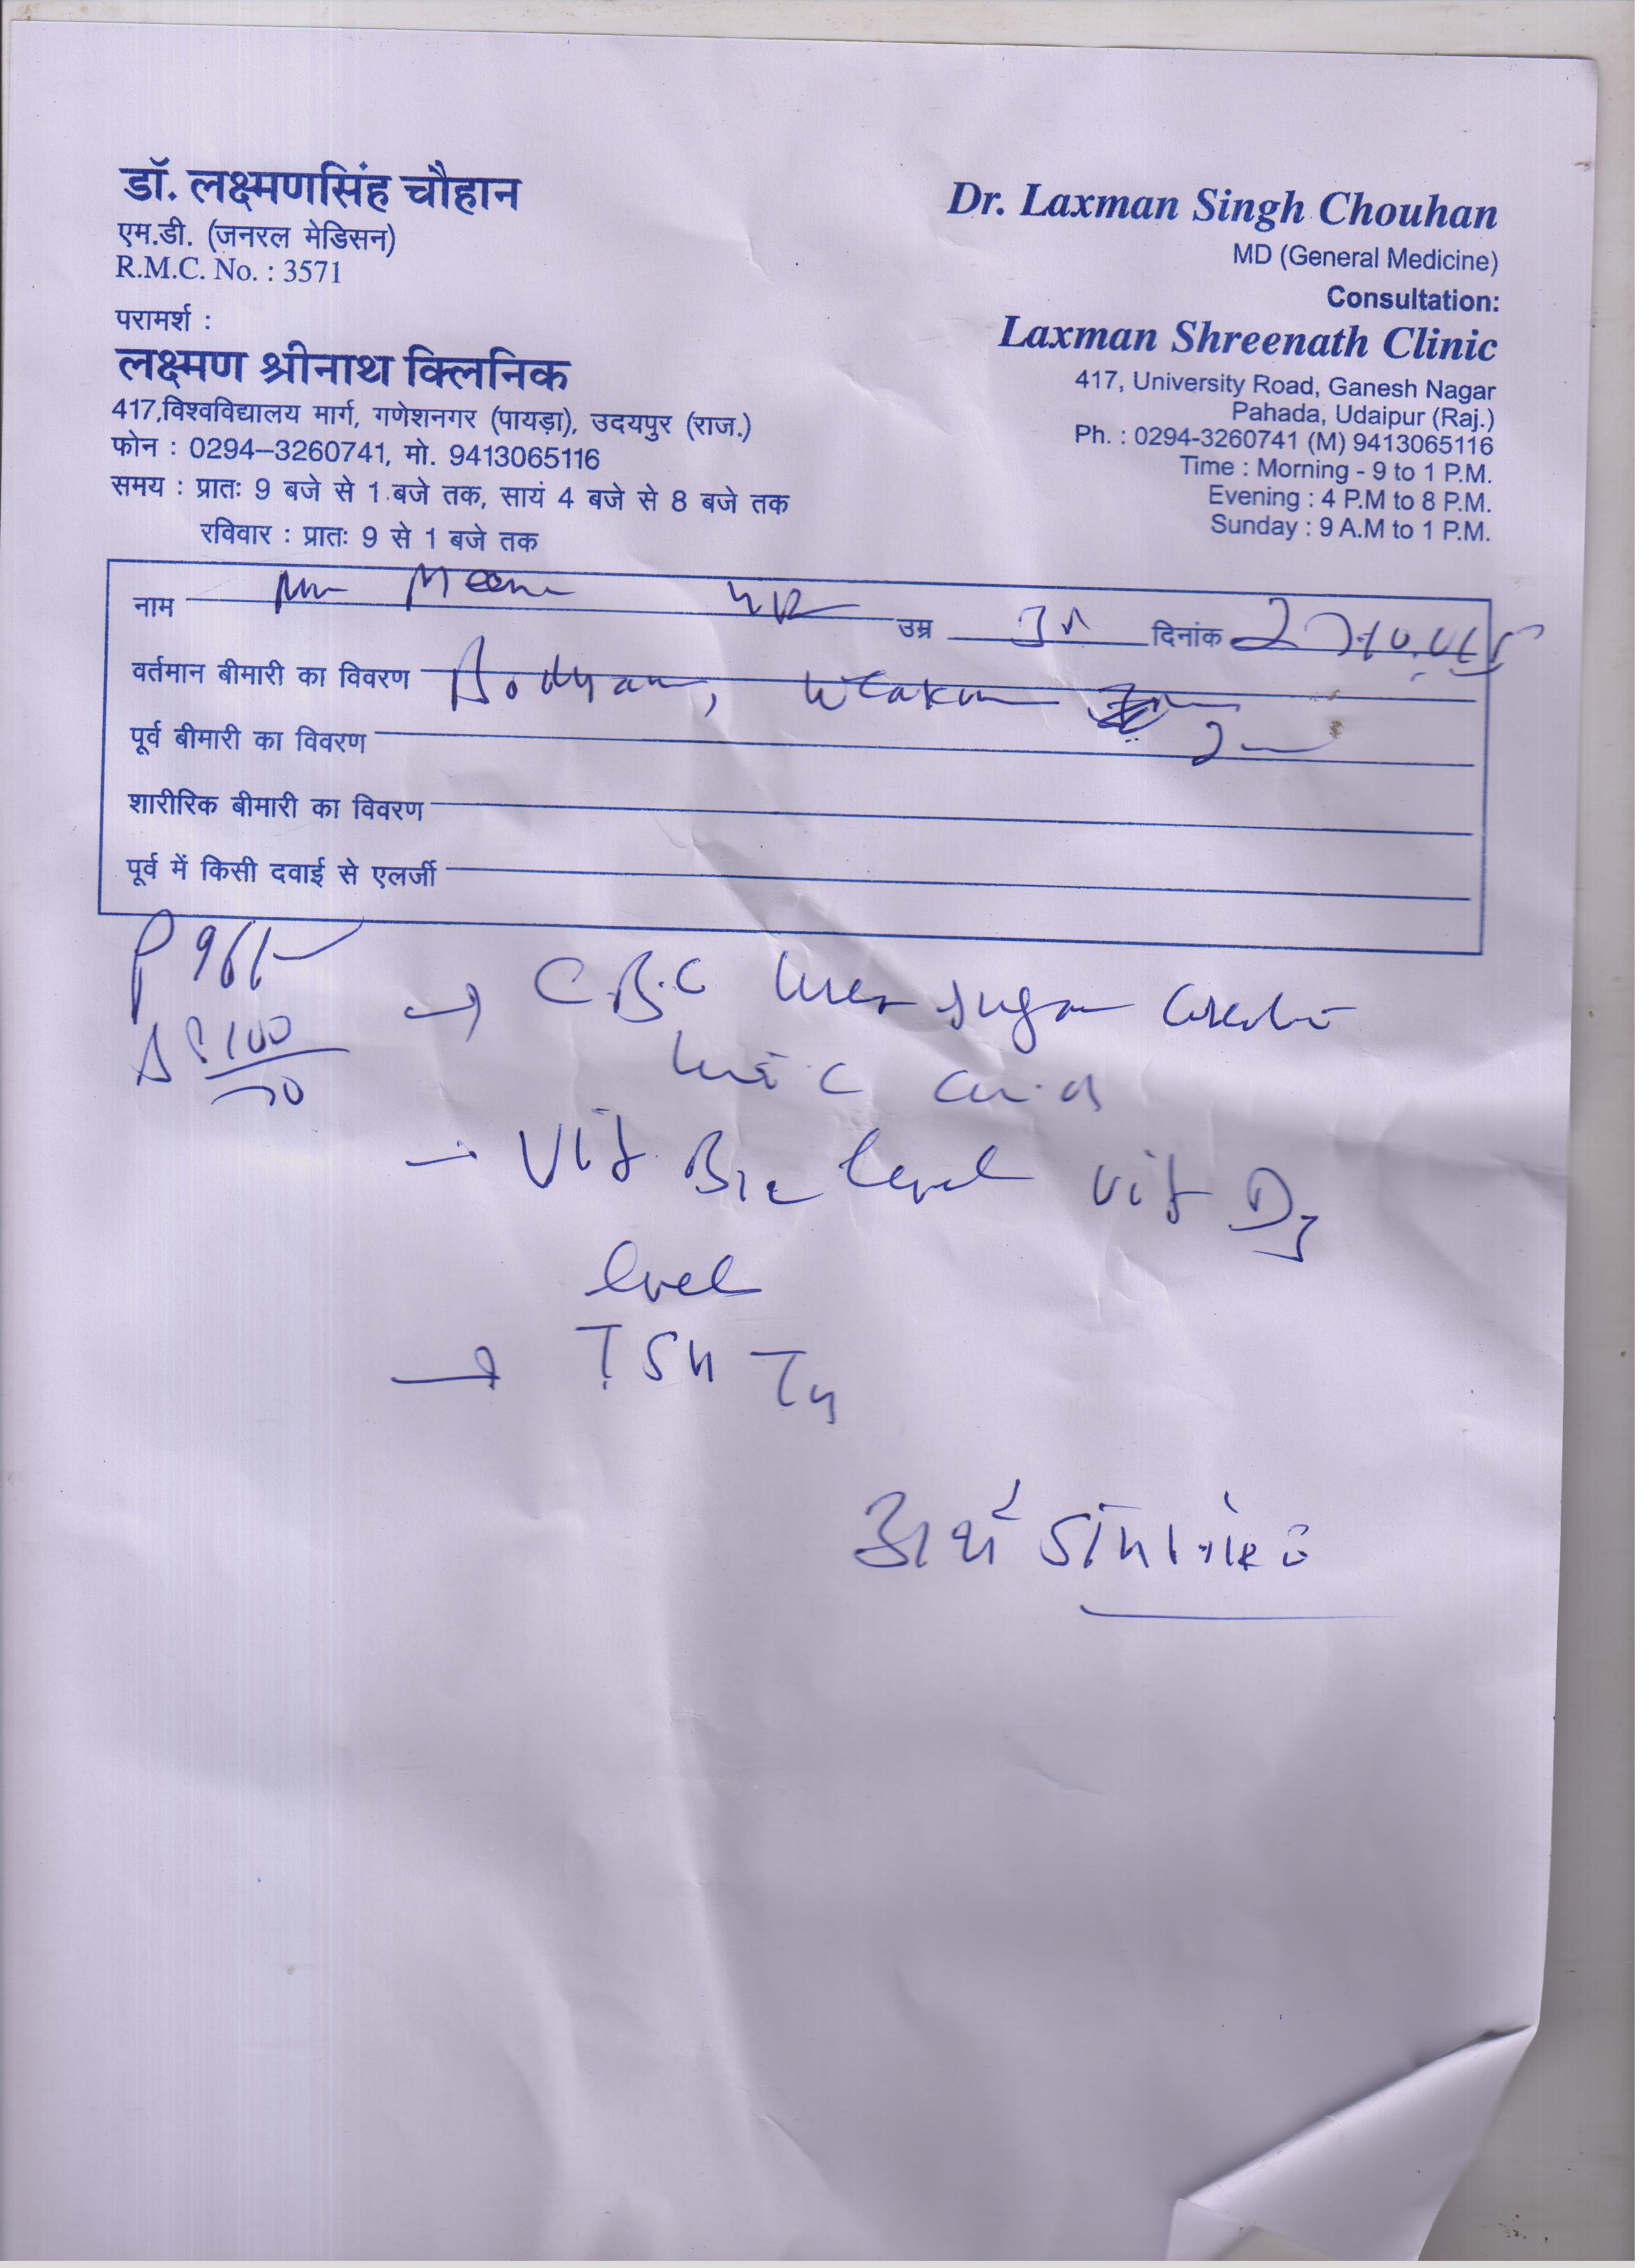 डॉ. लक्ष्मणसिंह चौहान
एम.डी. (जनरल मेडिसन)
R.M.C. No. : 3571
परामर्श :
लक्ष्मण श्रीनाथ क्लिनिक
417,विश्वविद्यालय मार्ग, गणेशनगर (पायड़ा), उदयपुर (राज.)
फोन : 0294-3260741, मो. 9413065116
समय : प्रातः 9 बजे से 1 बजे तक, सायं 4 बजे से 8 बजे तक
रविवार : प्रातः 9 से 1 बजे तक
Dr. Laxman Singh Chouhan
MD (General Medicine)
Consultation:
Laxman Shreenath Clinic
417, University Road, Ganesh Nagar
Pahada, Udaipur (Raj.)
Ph. : 0294-3260741 (M) 9413065116
Time : Morning - 9 to 1 P.M.
Evening : 4 P.M to 8 P.M.
Sunday : 9 A.M to 1 P.M.
नाम उम्र दिनांक
वर्तमान बीमारी का विवरण
पूर्व बीमारी का विवरण
शारीरिक बीमारी का विवरण
पूर्व में किसी दवाई से एलर्जी
P 96/-
→ C.B.C Urea sugar
100
Uric acid
Vit B12 level Vit D3
level
→ TSH T4